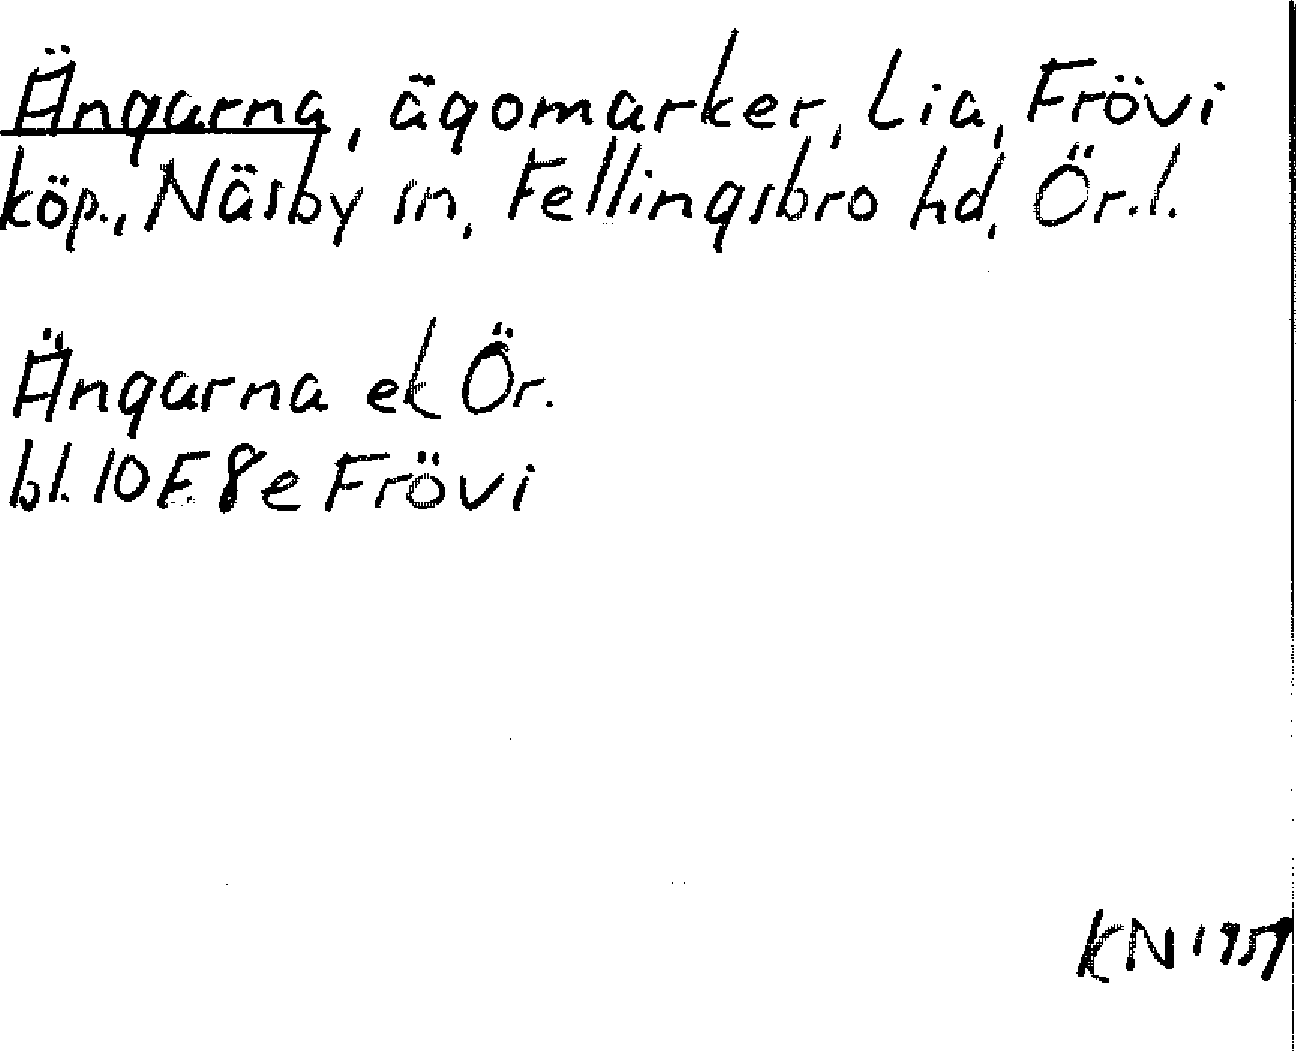 Ängarna, ägomarker, Lia, Frövi
köp., Näsby sn, Fellingsbro hd, Ör.l.
Ängarna ek Ör.
bl. 10F 8e Frövi
KN